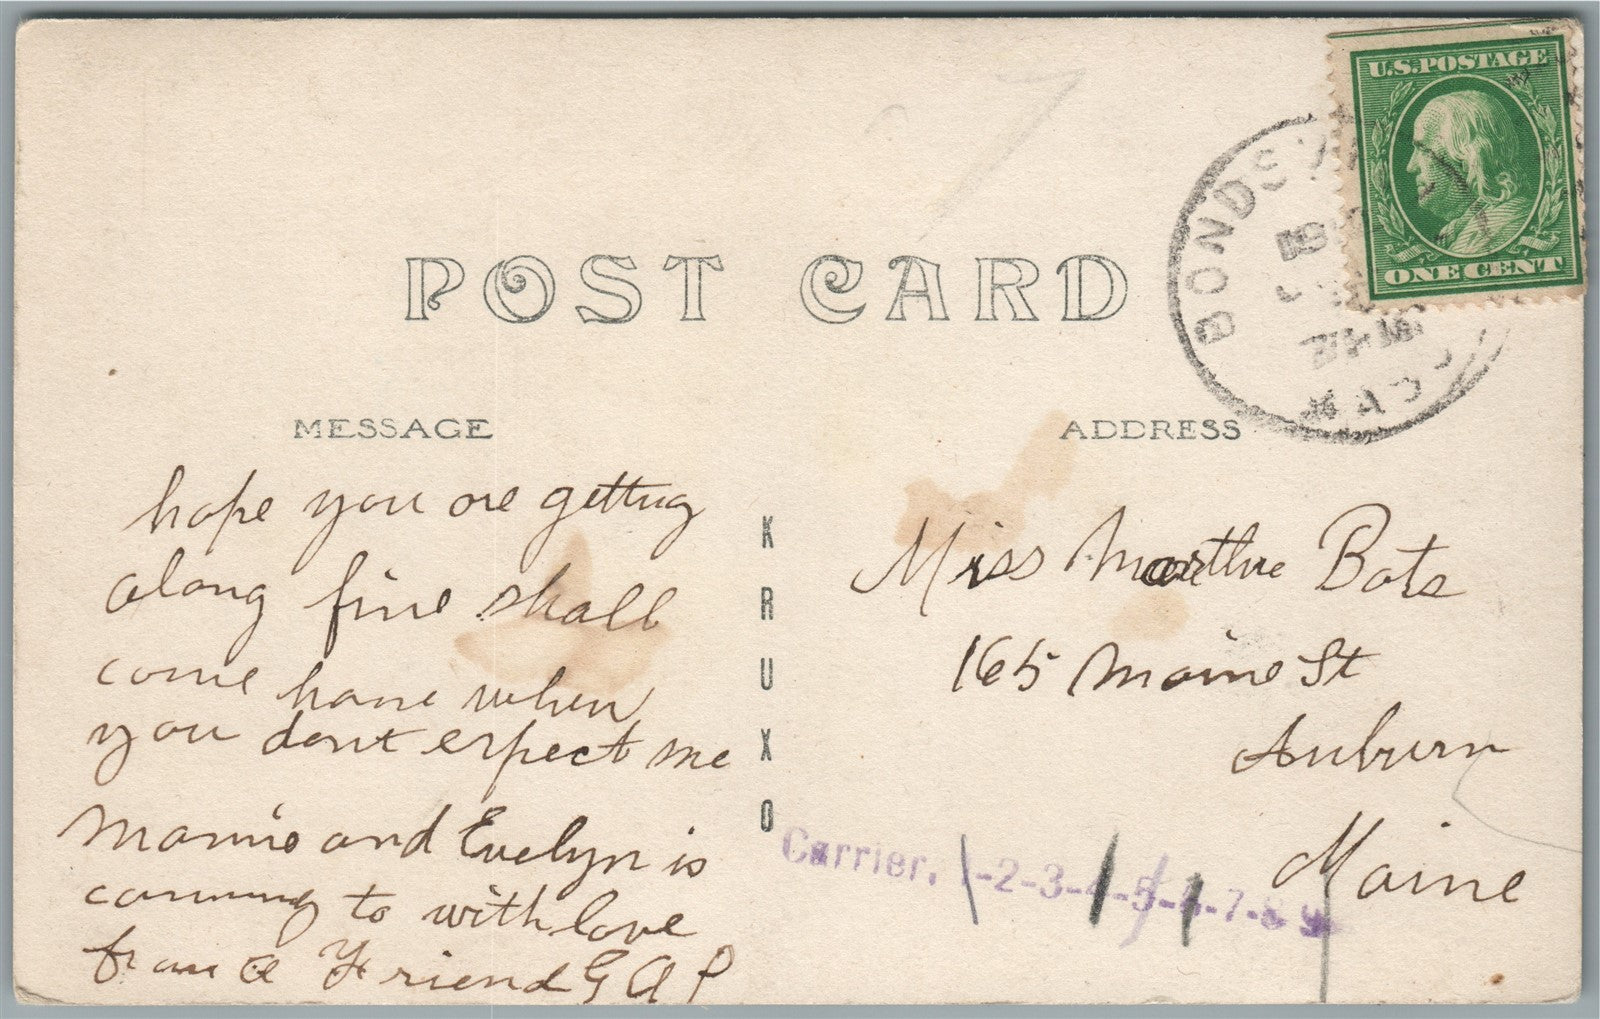 U.S. POSTAGE
ONE CENT
BONDSV
MASS
POST CARD
MESSAGE
hope you are getting
along fine shall
come home when
you dont expect me
Mamie and Evelyn is
comming to with love
from a Friend G A P
KRUXO
ADDRESS
Miss Marthie Bots
165 Maine St
Auburn
Maine
Carrier. 1-2-3-4-5-6-7-8-9